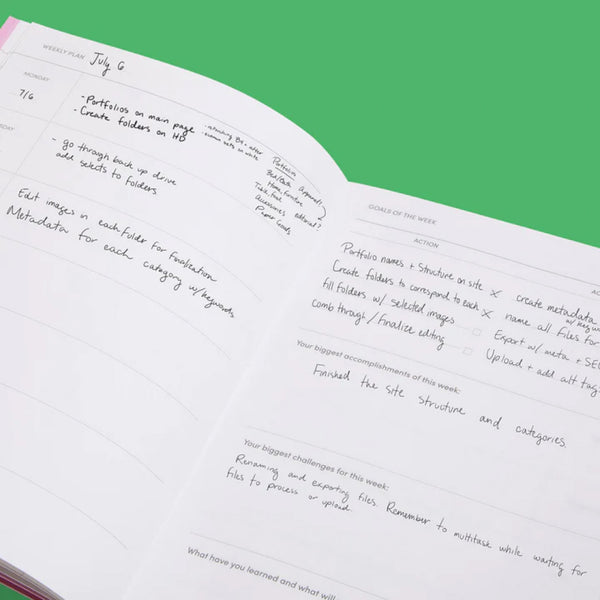 WEEKLY PLAN July 6
MONDAY
7/6
- Portfolios on main page
- Create folders on HD
Portfolio
Bed/Bath Apparel
Home, Furniture
Table, Food
Accessories editorial?
Paper Goods
- go through back up drive
add selects to folders
Edit images in each folder for finalization
Metadata for each category w/ keywords
GOALS OF THE WEEK
ACTION
Portfolio names + structure on site X create metadata
w/ keyw
Create folders to correspond to each X name all files for
fill folders w/ selected images Export w/ meta + SEO
comb through / finalize editing Upload + add alt tags
Your biggest accomplishments of this week:
Finished the site structure and categories.
Your biggest challenges for this week:
Renaming and exporting files. Remember to multitask while waiting for
files to process or upload.
What have you learned and what will